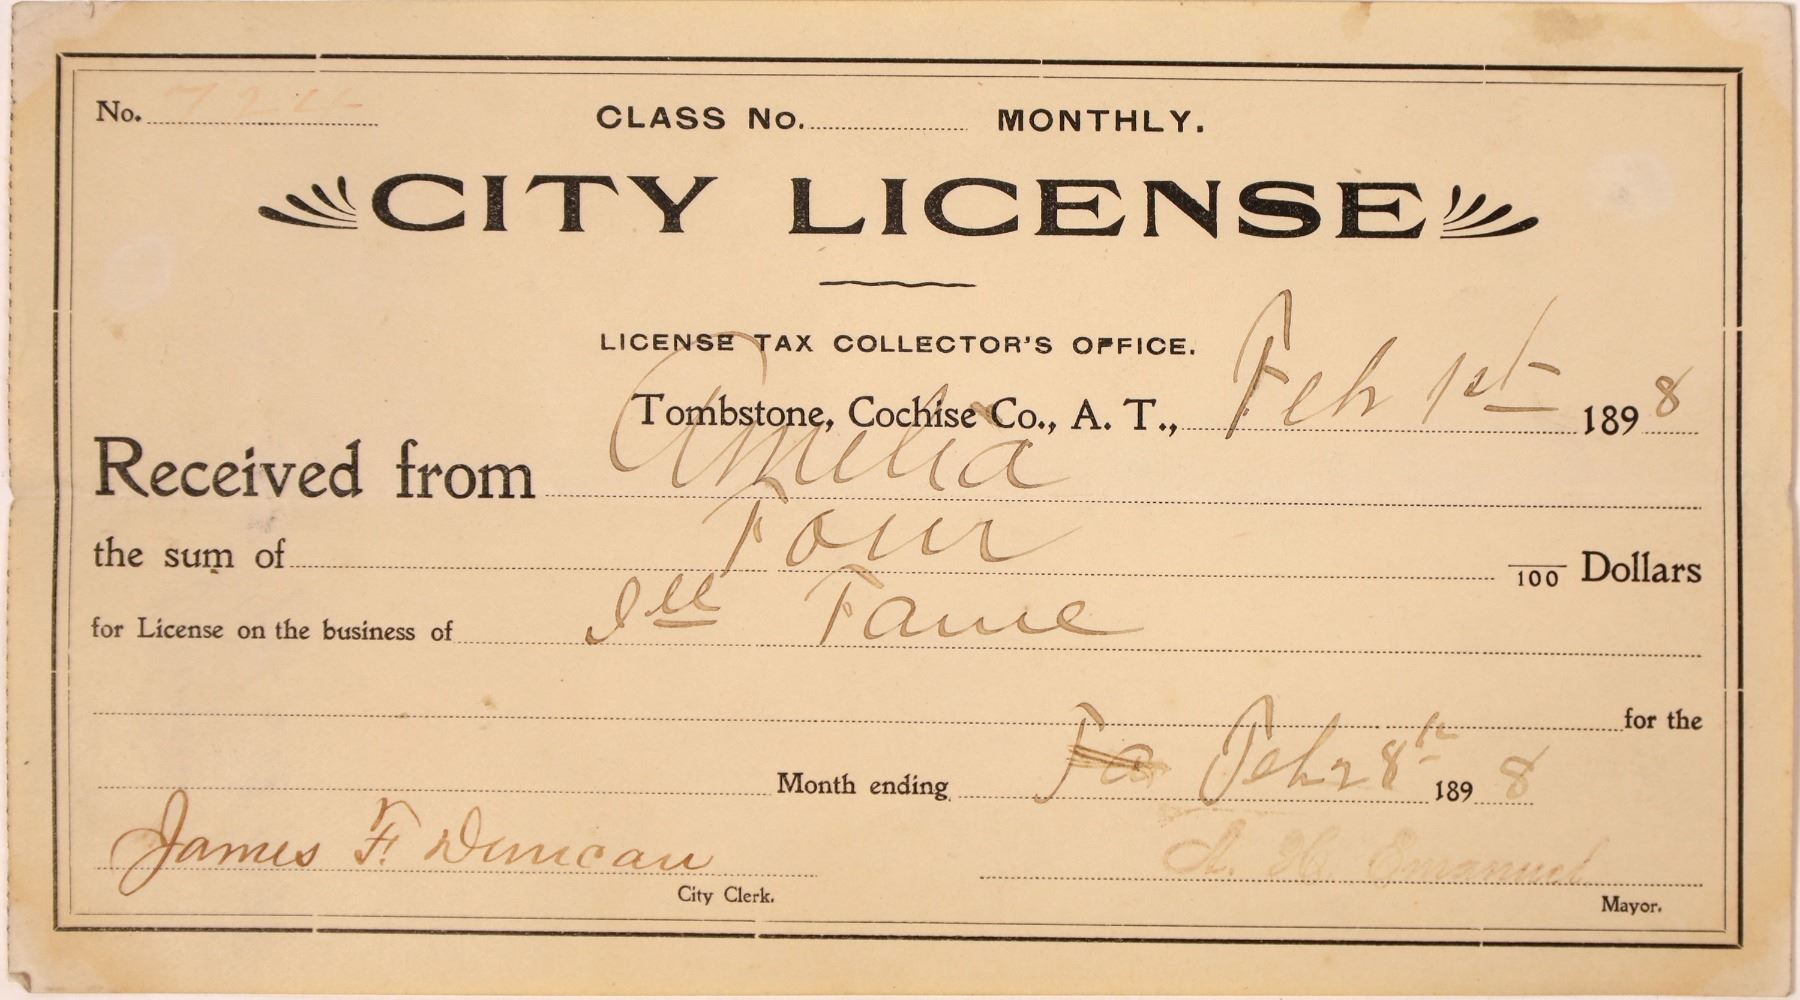 No. 724 CLASS No. MONTHLY.
CITY LICENSE
LICENSE TAX COLLECTOR'S OFFICE.
Tombstone, Cochise Co., A. T., Feb 1st 1898
Received from Amelia
the sum of Four /100 Dollars
for License on the business of Ill Fame
for the
Month ending Feb 28th 1898
James F. Duncan A. H. Emanuel
City Clerk. Mayor.